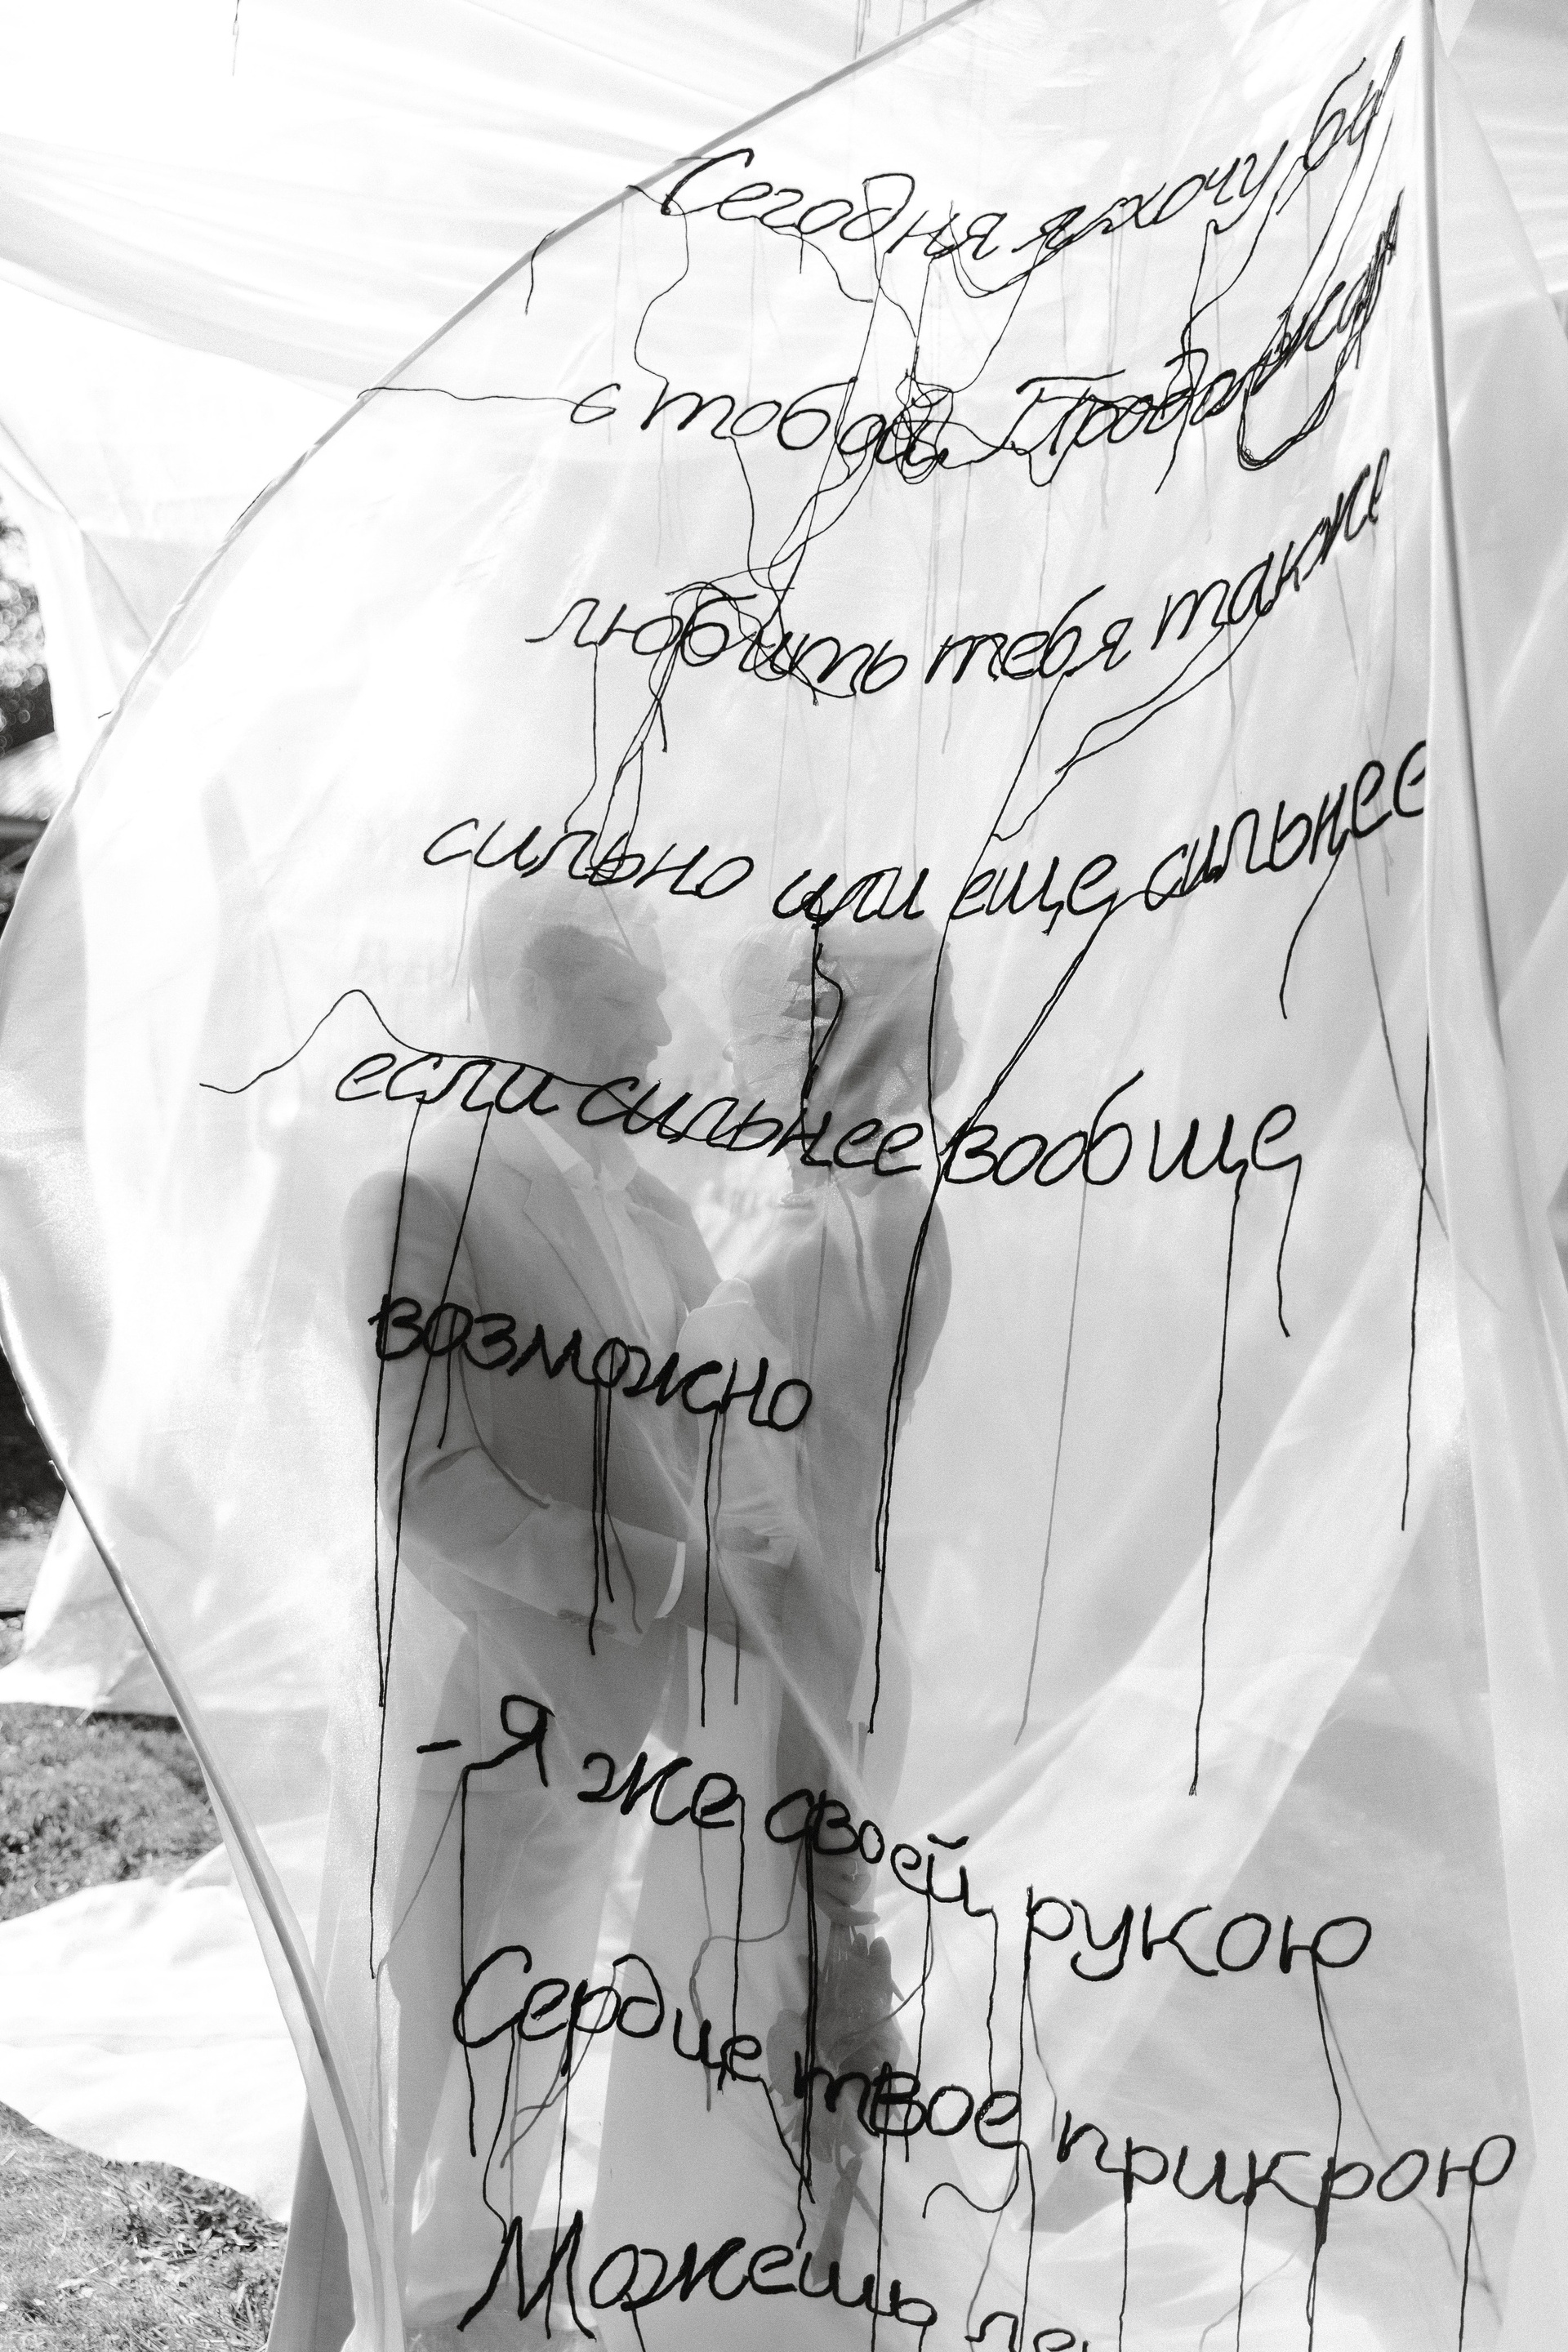 Сегодня я хочу
с тобой.
любить тебя также
сильно или еще сильнее
если сильнее вообще
возможно
- Я же своей рукою
Сердце твое прикрою
Можешь